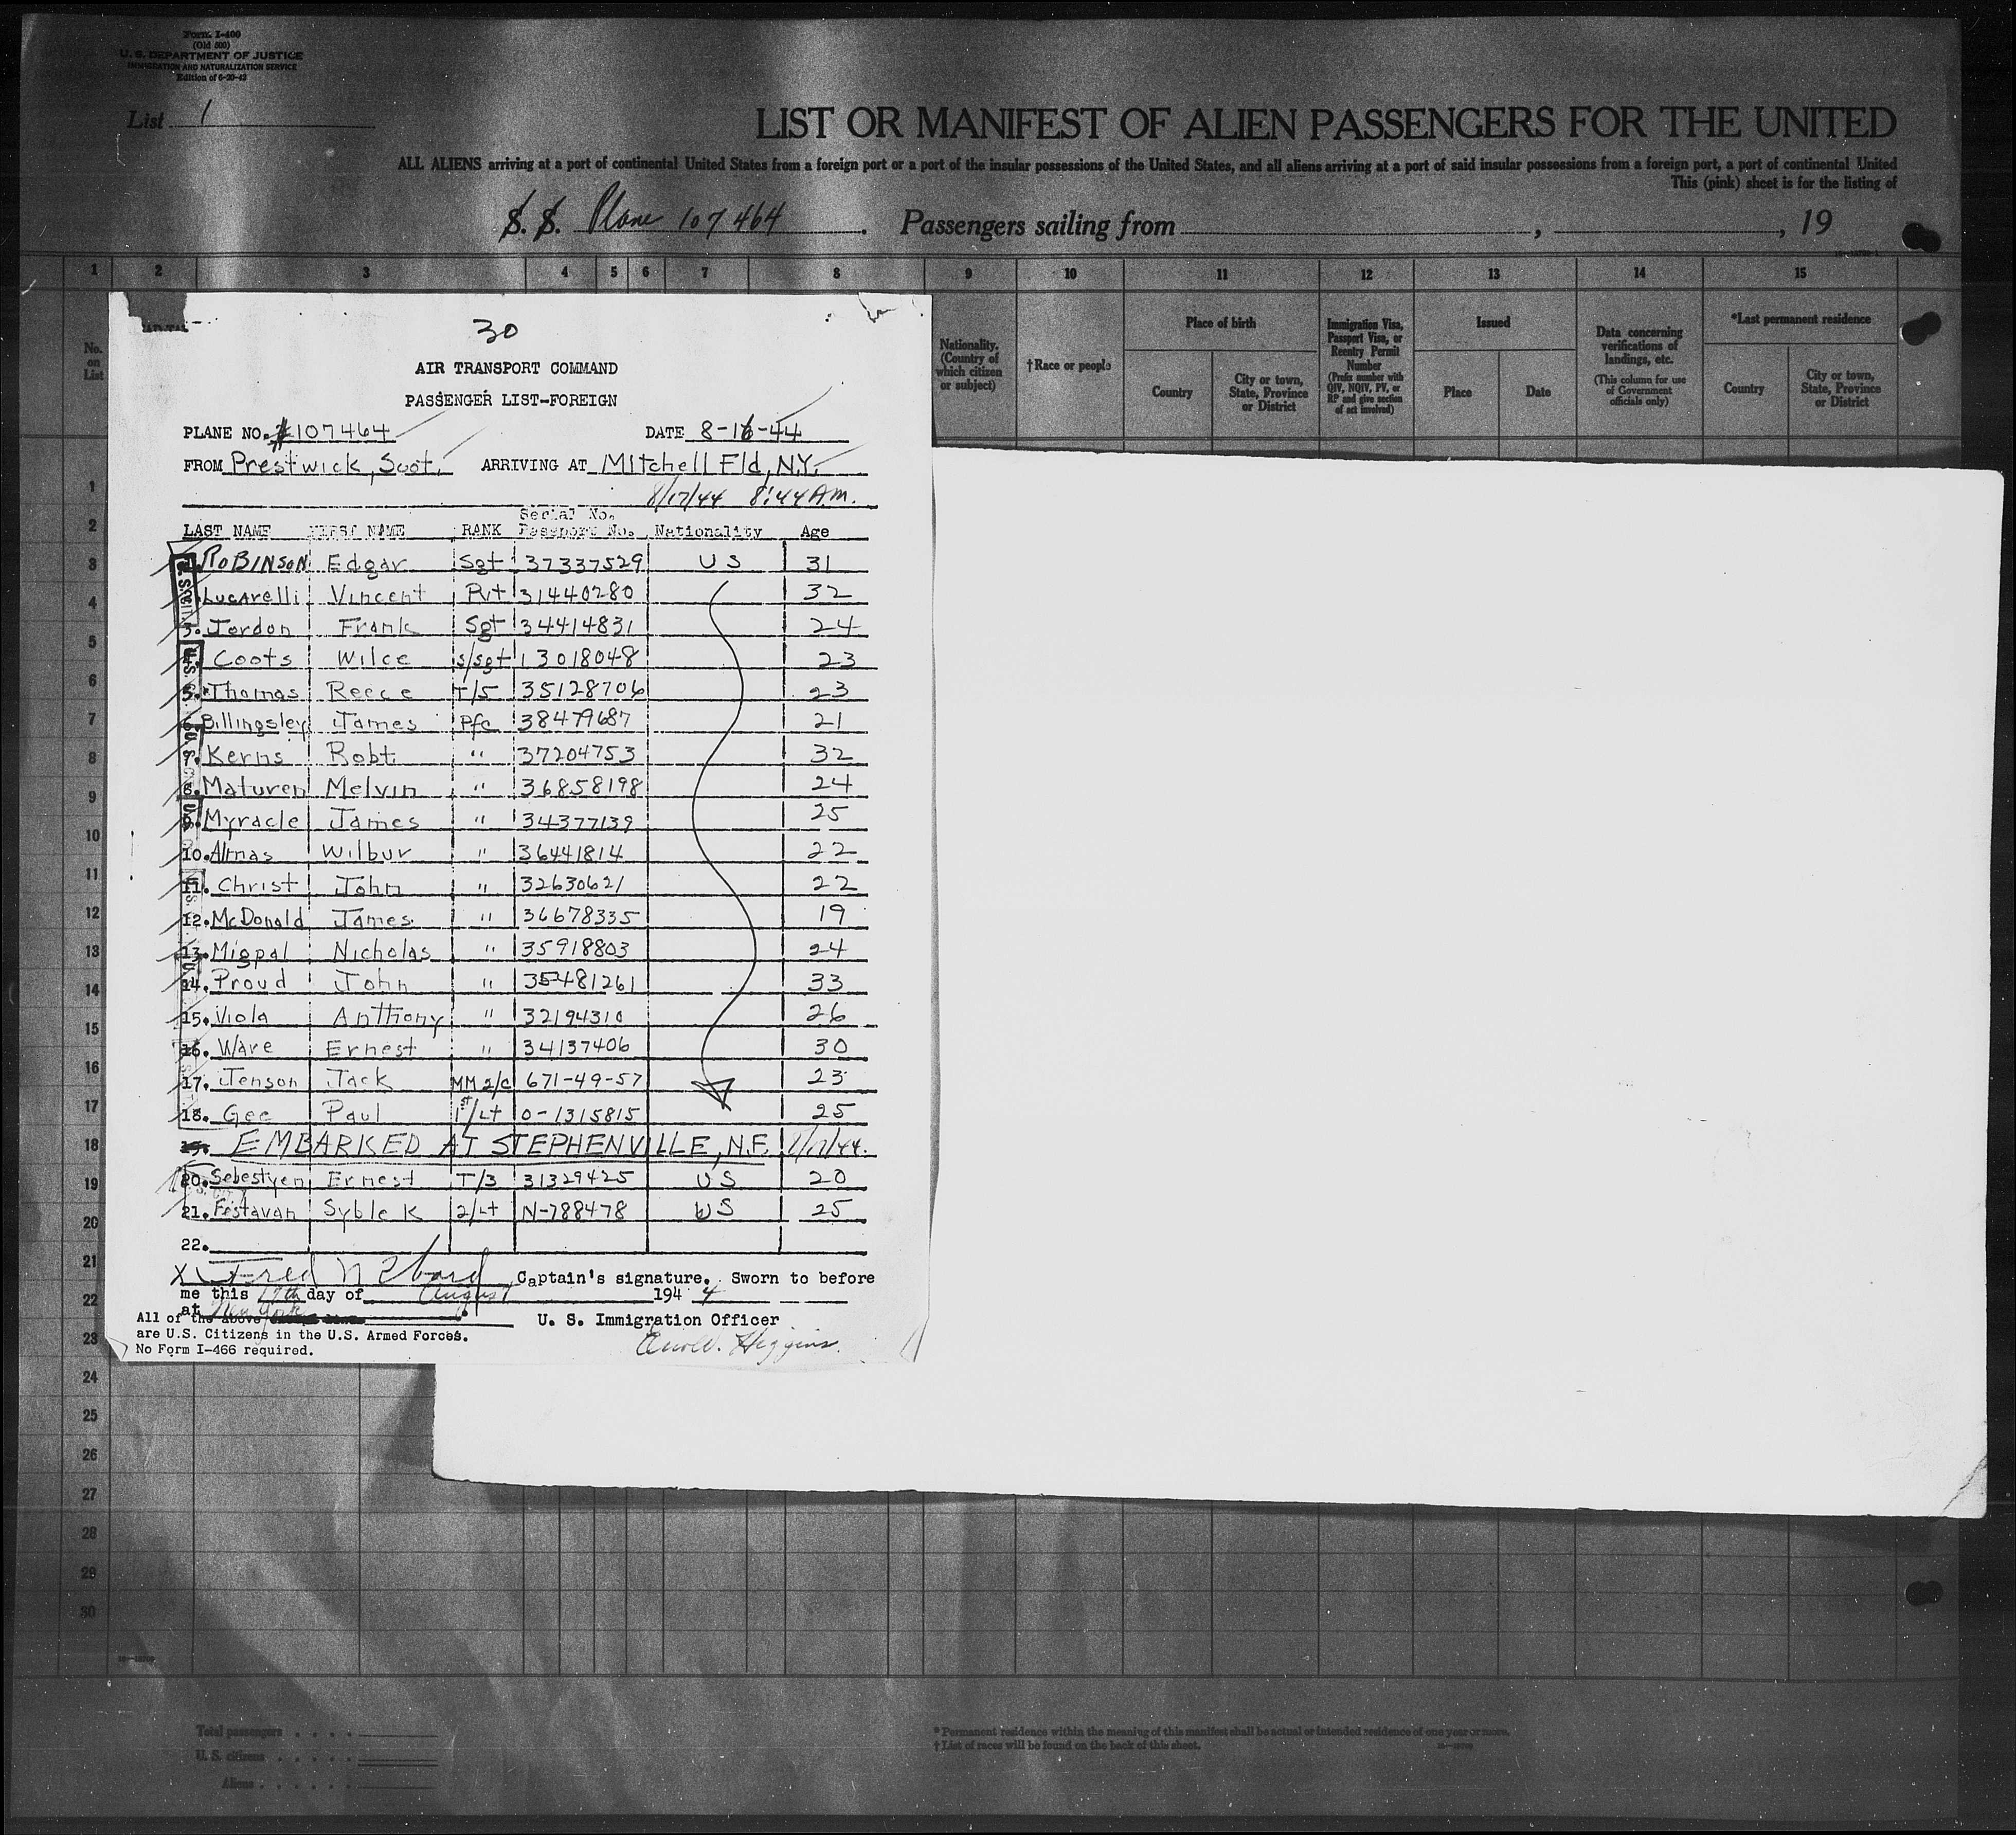 Form I-400
(Old 500)
U. S. DEPARTMENT OF JUSTICE
IMMIGRATION AND NATURALIZATION SERVICE
Edition of 6-20-42
List 1
LIST OR MANIFEST OF ALIEN PASSENGERS FOR THE UNITED
ALL ALIENS arriving at a port of continental United States from a foreign port or a port of the insular possessions of the United States, and all aliens arriving at a port of said insular possessions from a foreign port, a port of continental United
This (pink) sheet is for the listing of
S. S. Plane 107464. Passengers sailing from , , 19
1 2 3 4 5 6 7 8 9 10 11 12 13 14 15
No. on List
Nationality. (Country of which citizen or subject)
†Race or people
Place of birth
Country
City or town, State, Province or District
Immigration Visa, Passport Visa, or Reentry Permit Number
(Prefix number with QIV, NQIV, PV, or RP and give section of act involved)
Issued
Place
Date
Data concerning verifications of landings, etc.
(This column for use of Government officials only)
*Last permanent residence
Country
City or town, State, Province or District
30
AIR TRANSPORT COMMAND
PASSENGER LIST-FOREIGN
PLANE NO. #107464 DATE 8-16-44
FROM Prestwick, Scot. ARRIVING AT Mitchell Fld, N.Y.
8/17/44 8:44 A.M.
LAST NAME FIRST NAME RANK Serial No. Passport No. Nationality Age
1. ROBINSON Edgar Sgt 37337529 US 31
2. Lucarelli Vincent Pvt 31440280 32
3. Jordon Frank Sgt 34414831 24
4. Coots Wilce S/Sgt 13018048 23
5. Thomas Reece T/5 35128706 23
6. Billingsley James Pfc 38479687 21
7. Kerns Robt " 37204753 32
8. Maturen Melvin " 36858198 24
9. Myracle James " 34377139 25
10. Almas Wilbur " 36441814 22
11. Christ John " 32630621 22
12. McDonald James " 36678335 19
13. Migpal Nicholas " 35918803 24
14. Proud John " 35481261 33
15. Viola Anthony " 32194310 26
16. Ware Ernest " 34137406 30
17. Jenson Jack MM 2/C 671-49-57 23
18. Gee Paul 1st/Lt O-1315815 25
19. EMBARKED AT STEPHENVILLE, N.F. 8/17/44.
20. Sebestyen Ernest T/3 31329425 US 20
21. Festavan Syble K 2/Lt N-788478 US 25
22.
X Fred Captain's signature. Sworn to before
me this 17th day of August 194 4
at New York.
All of the above
U. S. Immigration Officer
are U.S. Citizens in the U.S. Armed Forces.
No Form I-466 required.
Higgins.
1
2
3
4
5
6
7
8
9
10
11
12
13
14
15
16
17
18
19
20
21
22
23
24
25
26
27
28
29
30
Total passengers
U. S. citizens
Aliens
* Permanent residence within the meaning of this manifest shall be actual or intended residence of one year or more.
† List of races will be found on the back of this sheet.